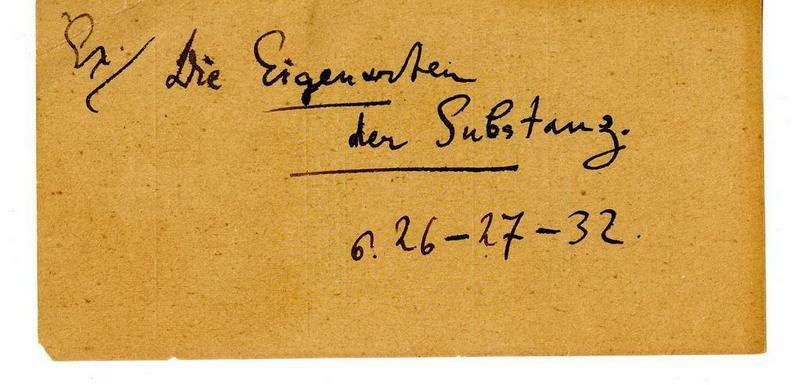 Ex./ Die Eigenarten
der Substanz.
σ. 26-27-32.